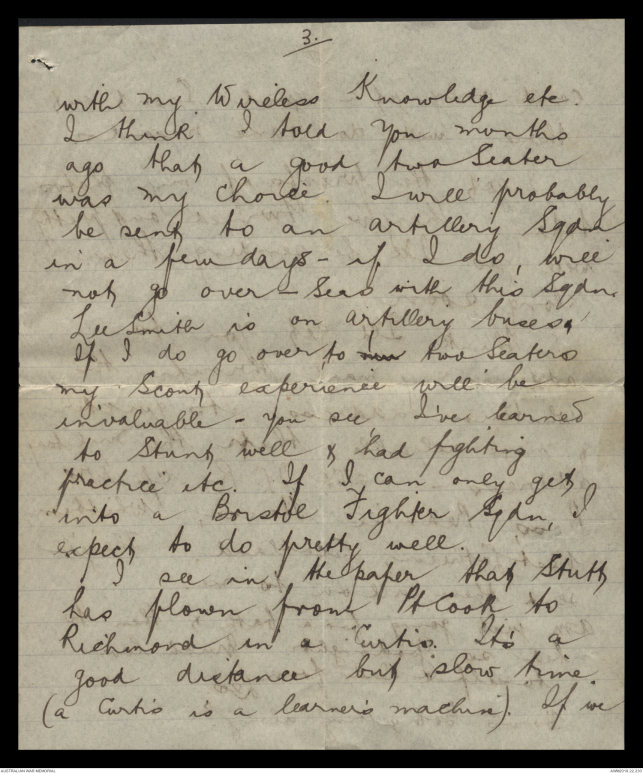 3.
with my Wireless Knowledge etc.
I think I told you months
ago that a good two Seater
was my choice. I will probably
be sent to an artillery Sqdn
in a few days – if I do, will
not go over-Seas with this Sqdn.
Lee Smith is on artillery buses,
If I do go over to two Seaters
my Scout experience will be
invaluable – you see, I've learned
to Stunt well & had fighting
practice etc. If I can only get
into a Bristol Fighter Sqdn, I
expect to do pretty well.
I see in the paper that Stutt
has flown from Pt Cook to
Richmond in a Curtis. It's a
good distance but slow time.
(a Curtis is a learner's machine). If we
AUSTRALIAN WAR MEMORIAL